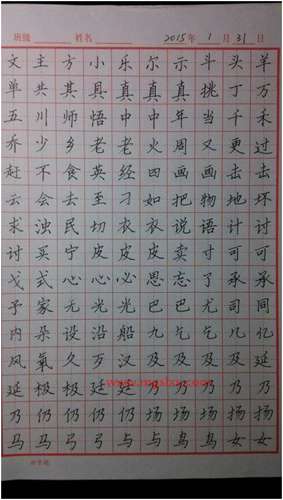 班级 姓名 2015年1月31日
文主方小乐尔示斗头羊
单共其具真真真挑丁万
五川师悟中中年当千禾
乔少乡老老火周又更过
赶不食英经四画画击击
云会去至刁如把物地坏
求浊民切衣衣说语计讨
讨买宁皮皮皮卖寸可可
戈式心心必思忘了承承
予家无光光巴巴尤司同
内朵设沿船九乞乞几亿
风氧久歹汉及及及及延
延极极廷廷及及及乃
乃仍仍仍仍场场场扬扬
马马弓弓与与鸟鸟女女